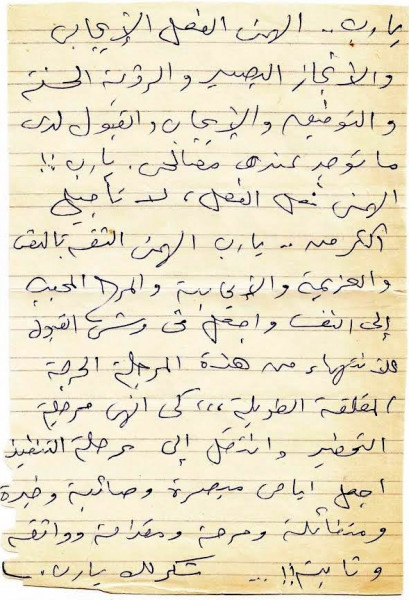 يارب.. الهمني الفعل الإيجابي
والإنجاز البصير والرؤية الحسنة
والتوفيق والإيجاب والقبول لدى
ما توجد عندها مفاتحي. يارب!!
الهمني فعل الفعل، لا تأجيلي
أكثر من .. يارب الهمني الثقة بالنفس
والعزيمة والإيجابية والمرح المحبب
إلى النفس واجعل في وسعي القبول
للانتهاء من هذة المرحلة الحرجة
المقلقة الطويلة،،، كى انهى مرحلة
التحضير وانتقل إلى مرحلة التنفيذ
اجعل ايامى مبصرة وصائبة وخيرة
ومتفائلة ومرحة ومقدامة وواثقة
وثابتة!!... شكر لك يارب.